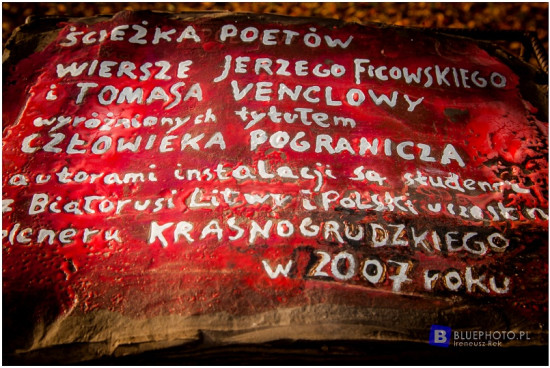 ŚCIEŻKA POETÓW
WIERSZE JERZEGO FICOWSKIEGO
i TOMASA VENCLOWY
wyróżnionych tytułem
CZŁOWIEKA POGRANICZA
autorami instalacji są studenci
z Białorusi Litwy i Polski uczestn
pleneru KRASNOGRUDZKIEGO
w 2007 roku
BLUEPHOTO.PL
Ireneusz Rek